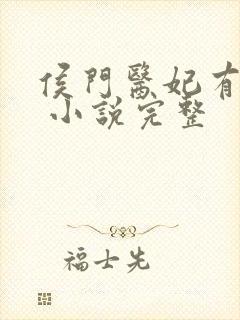 侯門醫妃有
小說完整
福士先